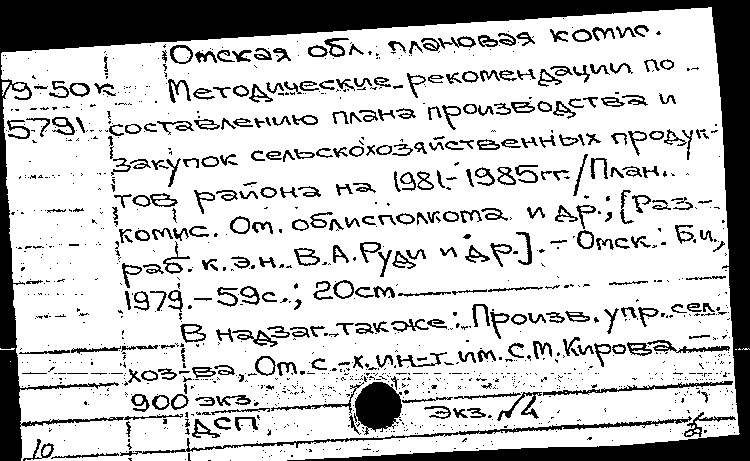 Омская обл. плановая комис.
79-50к Методические рекомендации по
5791 составлению плана производства и
закупок сельскохозяйственных продук-
тов района на 1981-1985гг. / План.
комис. Ом. облисполкома и др.; [Раз-
раб. к.э.н. В.А.Руди и др.]. - Омск: Б.и.,
1979. - 59с.; 20см
В надзаг. также: Произв. упр. сел.
хоз-ва, Ом. с.-х. ин-т им. С.М. Кирова. -
900 экз.
ДСП. Экз. №4
10